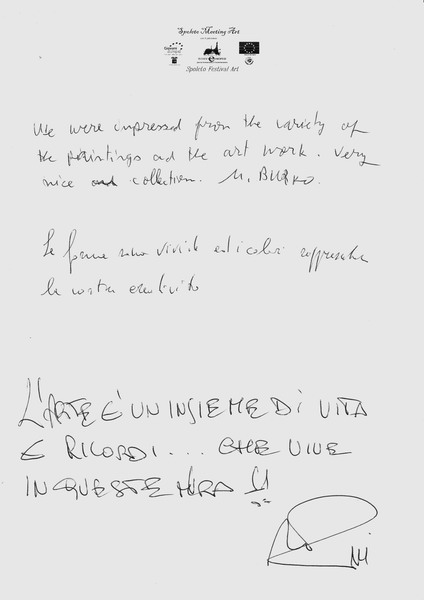 Spoleto Meeting Art
Spoleto Festival Art
We were impressed from the variety of
the paintings and the art work. Very
nice collection. M. BURKO.
Le forme sono vivide ed i colori
la vostra creatività
L'ARTE È UN INSIEME DI VITA
E RICORDI... CHE VIVE
IN QUESTE MURA !!